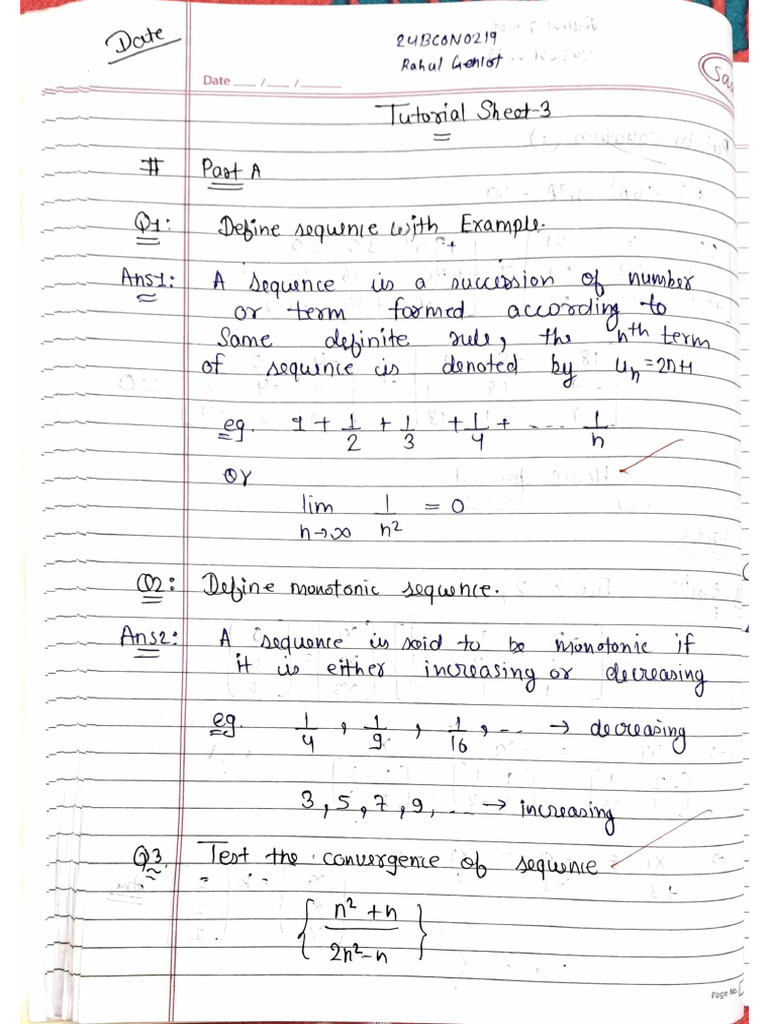 Date
24BCON0219
Rahul Gehlot
Date ___ / ___ / ______
Tutorial Sheet-3
# Part A
Q1: Define sequence with Example.
Ans1: A sequence is a succession of number
or term formed according to
Same definite rule, the nth term
of sequence is denoted by uₙ=2n+1
eg. 1 + 1/2 + 1/3 + 1/4 + ... 1/n
or
lim n→∞ 1/n² = 0
Q2: Define monotonic sequence.
Ans2: A sequence is said to be monotonic if
it is either increasing or decreasing
eg. 1/4, 1/9, 1/16, ... → decreasing
3, 5, 7, 9, ... → increasing
Q3. Test the convergence of sequence
{ n² + n / 2n² - n }
Page No.